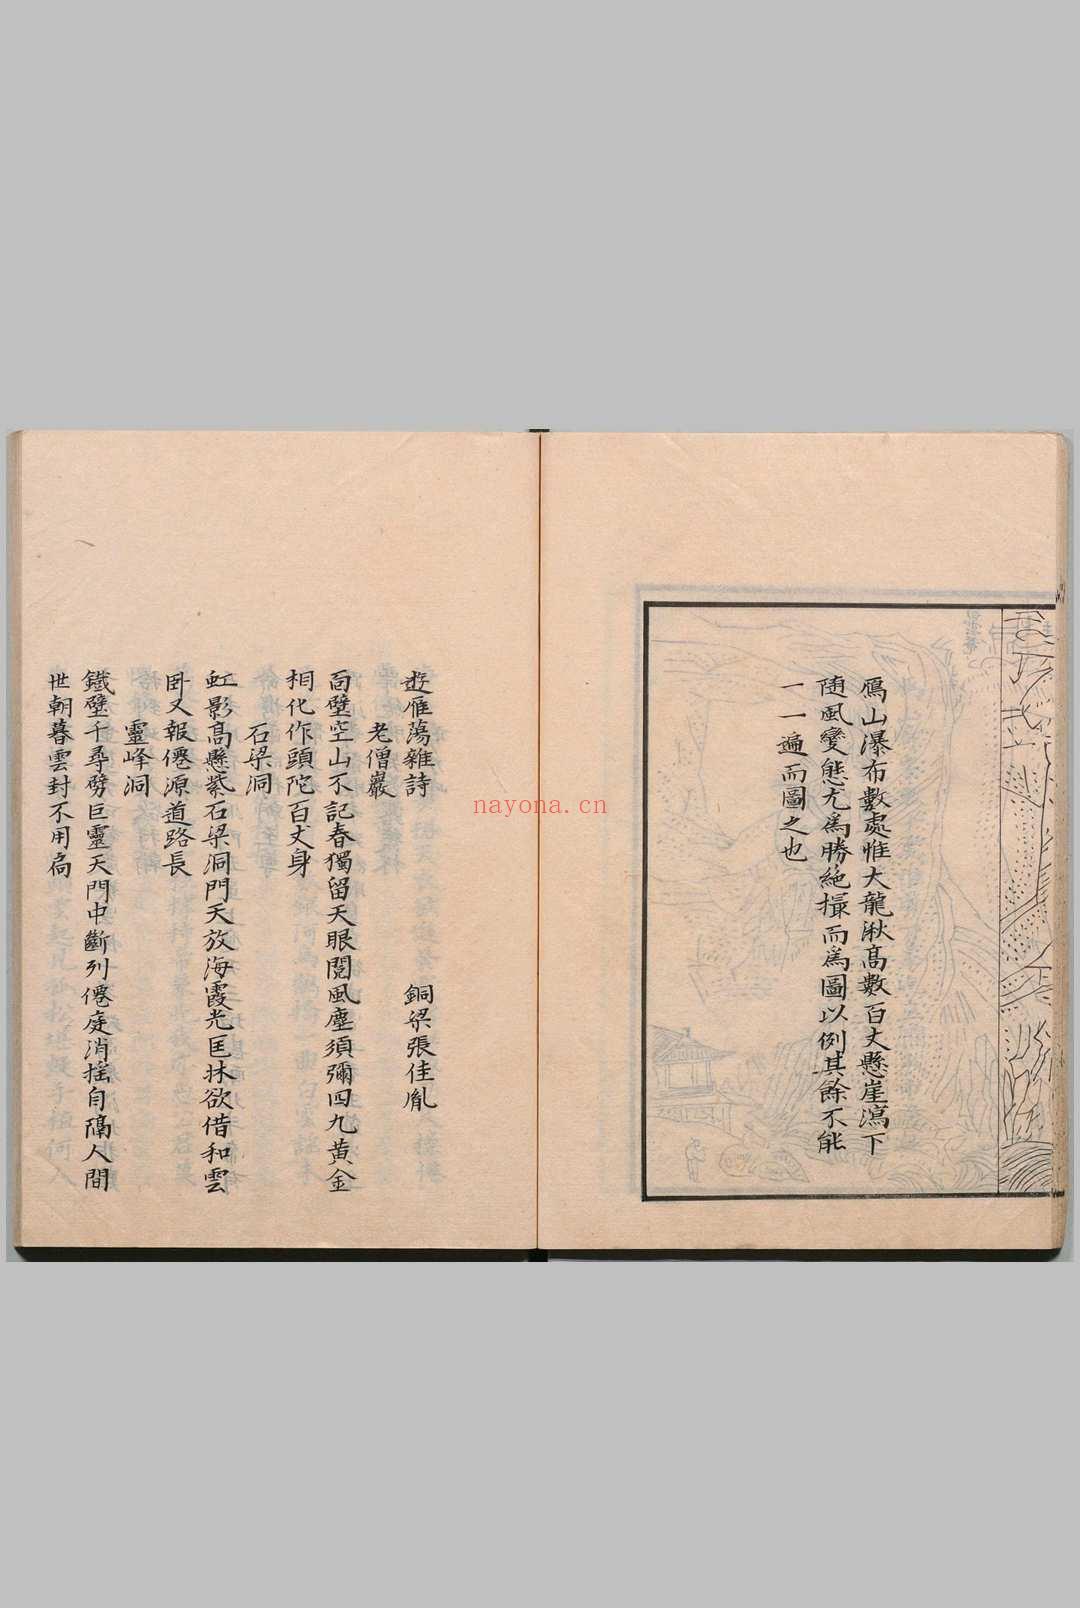 鴈山瀑布數處惟大龍湫髙數百丈懸崖瀉下
随風變態尤爲勝絶撮而爲圖以例其餘不能
一一遍而圖之也
遊雁蕩雜詩 銅梁張佳胤
老僧巖
面壁空山不記春獨留天眼閱風塵須彌四九黄金
相化作頭陀百丈身
石梁洞
虹影髙懸紫石梁洞門天放海霞光匡牀欲借和雲
卧又報僊源道路長
靈峰洞
鐵壁千尋劈巨靈天門中斷列僊庭消摇自隔人間
世朝暮雲封不用扃
nayona.cn